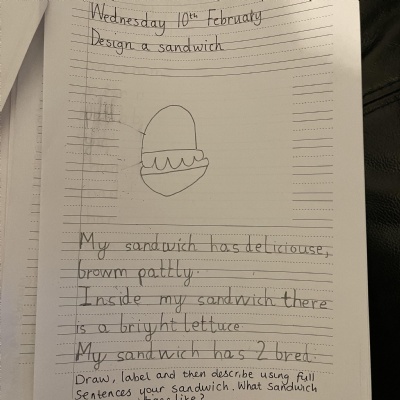 Wednesday 10th February
Design a sandwich
My sandwich has deliciouse,
browm pattly.
Inside my sandwich there
is a bright lettuce
My sandwich has 2 bred.
Draw, label and then describe using full
sentences your sandwich. What sandwich
like?